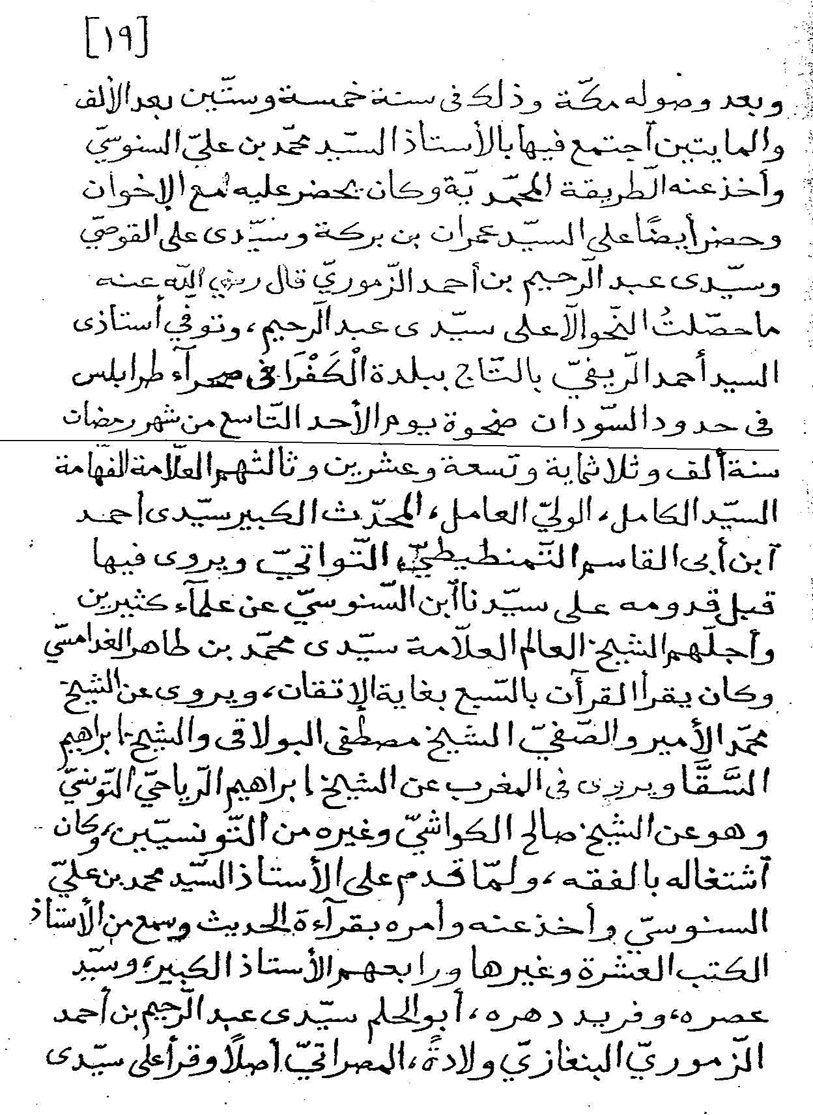 [١٩]
وبعد وصوله مكّة وذلك فى سنة خمسة وستّين بعد الألف
والمايتين اجتمع فيها بالأستاذ السيّد محمّد بن عليّ السنوسيّ
وأخذ عنه الطّريقة المحمّديّة وكان يحضر عليه مع الإخوان
وحضر أيضًا على السيّد عمران بن بركة وسيّدى على القوصيّ
وسيّدى عبد الرّحيم بن أحمد الزّموريّ قال رضي الله عنه
ما حصّلتُ النّحو إلّا على سيّدى عبد الرّحيم، وتوفّي أستاذى
السيد أحمد الرّيفيّ بالتّاج ببلدة الْكَفْرَا فى صحرآء طرابلس
فى حدود السّودان ضحوة يوم الأحد التّاسع من شهر رمضان
سنة ألف وثلاثماية وتسعة وعشرين وثالثهم العلّامة الفهّامة
السيّد الكامل، الوليّ العامل، المحدّث الكبير سيّدى أحمد
ابن أبى القاسم التّمنطيطيّ التّواتيّ ويروى فيها
قبل قدومه على سيّدنا ابن السّنوسيّ عن علمآء كثيرين
وأجلّهم الشيخ العالم العلّامة سيّدى محمّد بن طاهر الغدامسّي
وكان يقرأ القرآن بالسّبع بغاية الإتقان، ويروى عن الشيخ
محمّد الأمير والصّفيّ الشيخ مصطفى البولاقى والشيخ ابراهيم
السَّقَّا ويروى فى المغرب عن الشيخ ابراهيم الرّياحيّ التّونسيّ
وهو عن الشيخ صالح الكواشيّ وغيره من التّونسيّين، وكان
اشتغاله بالفقه، ولمّا قدم على الأستاذ السّيّد محمد بن عليّ
السنوسيّ وأخذ عنه وأمره بقرآءة الحديث وسمع من الأستاذ
الكتب العشرة وغيرها ورابعهم الأستاذ الكبير، وسيّد
عصره، وفريد دهره، أبو الحلم سيّدى عبد الرّحيم بن أحمد
الزّموريّ البنغازيّ ولادةً، المصراتيّ أصلًا وقرأ على سيّدى